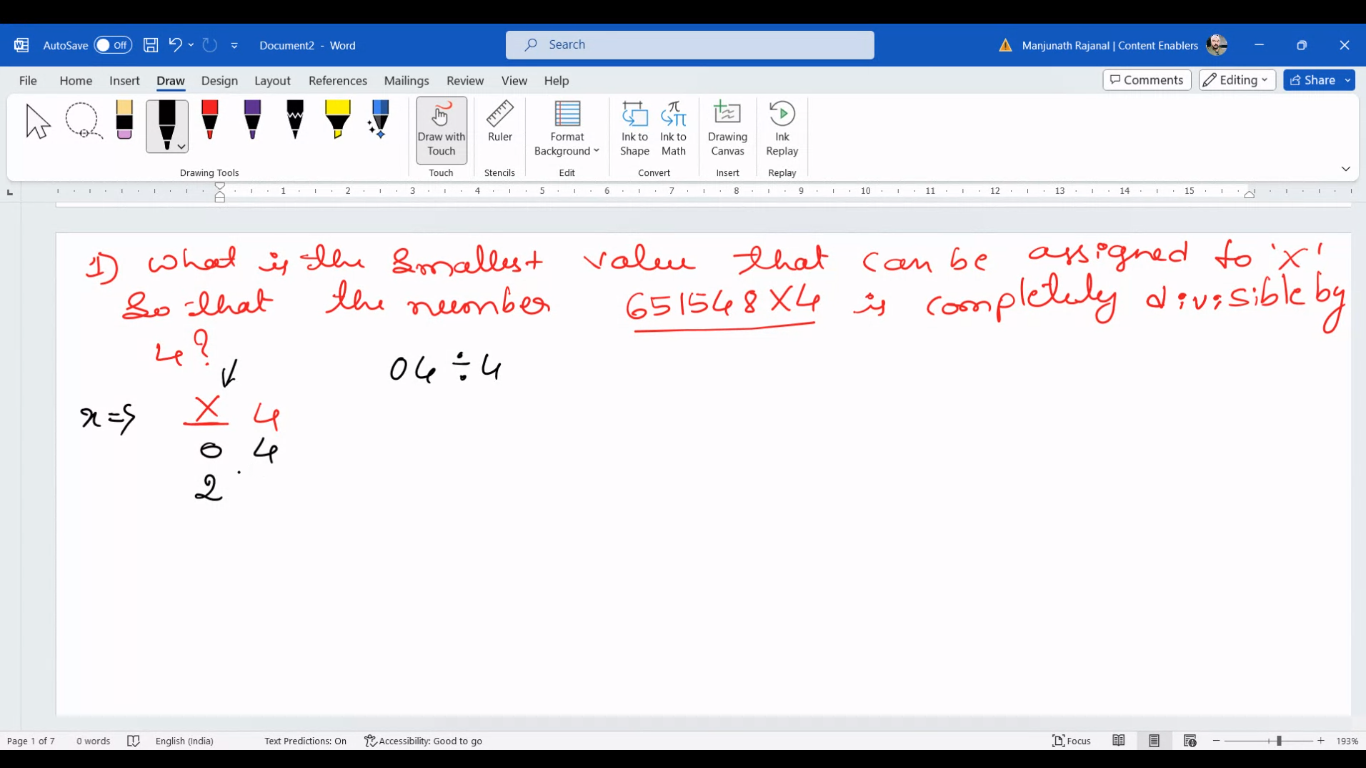 AutoSave Off Document2 - Word Search Manjunath Rajanal | Content Enablers
File Home Insert Draw Design Layout References Mailings Review View Help Comments Editing Share
Draw with Touch Ruler Format Background Ink to Shape Ink to Math Drawing Canvas Ink Replay
Drawing Tools Touch Stencils Edit Convert Insert Replay
1 2 3 4 5 6 7 8 9 10 11 12 13 14 15
1) What is the smallest value that can be assigned to 'X'
So that the number 651548X4 is completely divisible by
4?
04 ÷ 4
x => X 4
0 4
2
Page 1 of 7 0 words English (India) Text Predictions: On Accessibility: Good to go Focus 193%